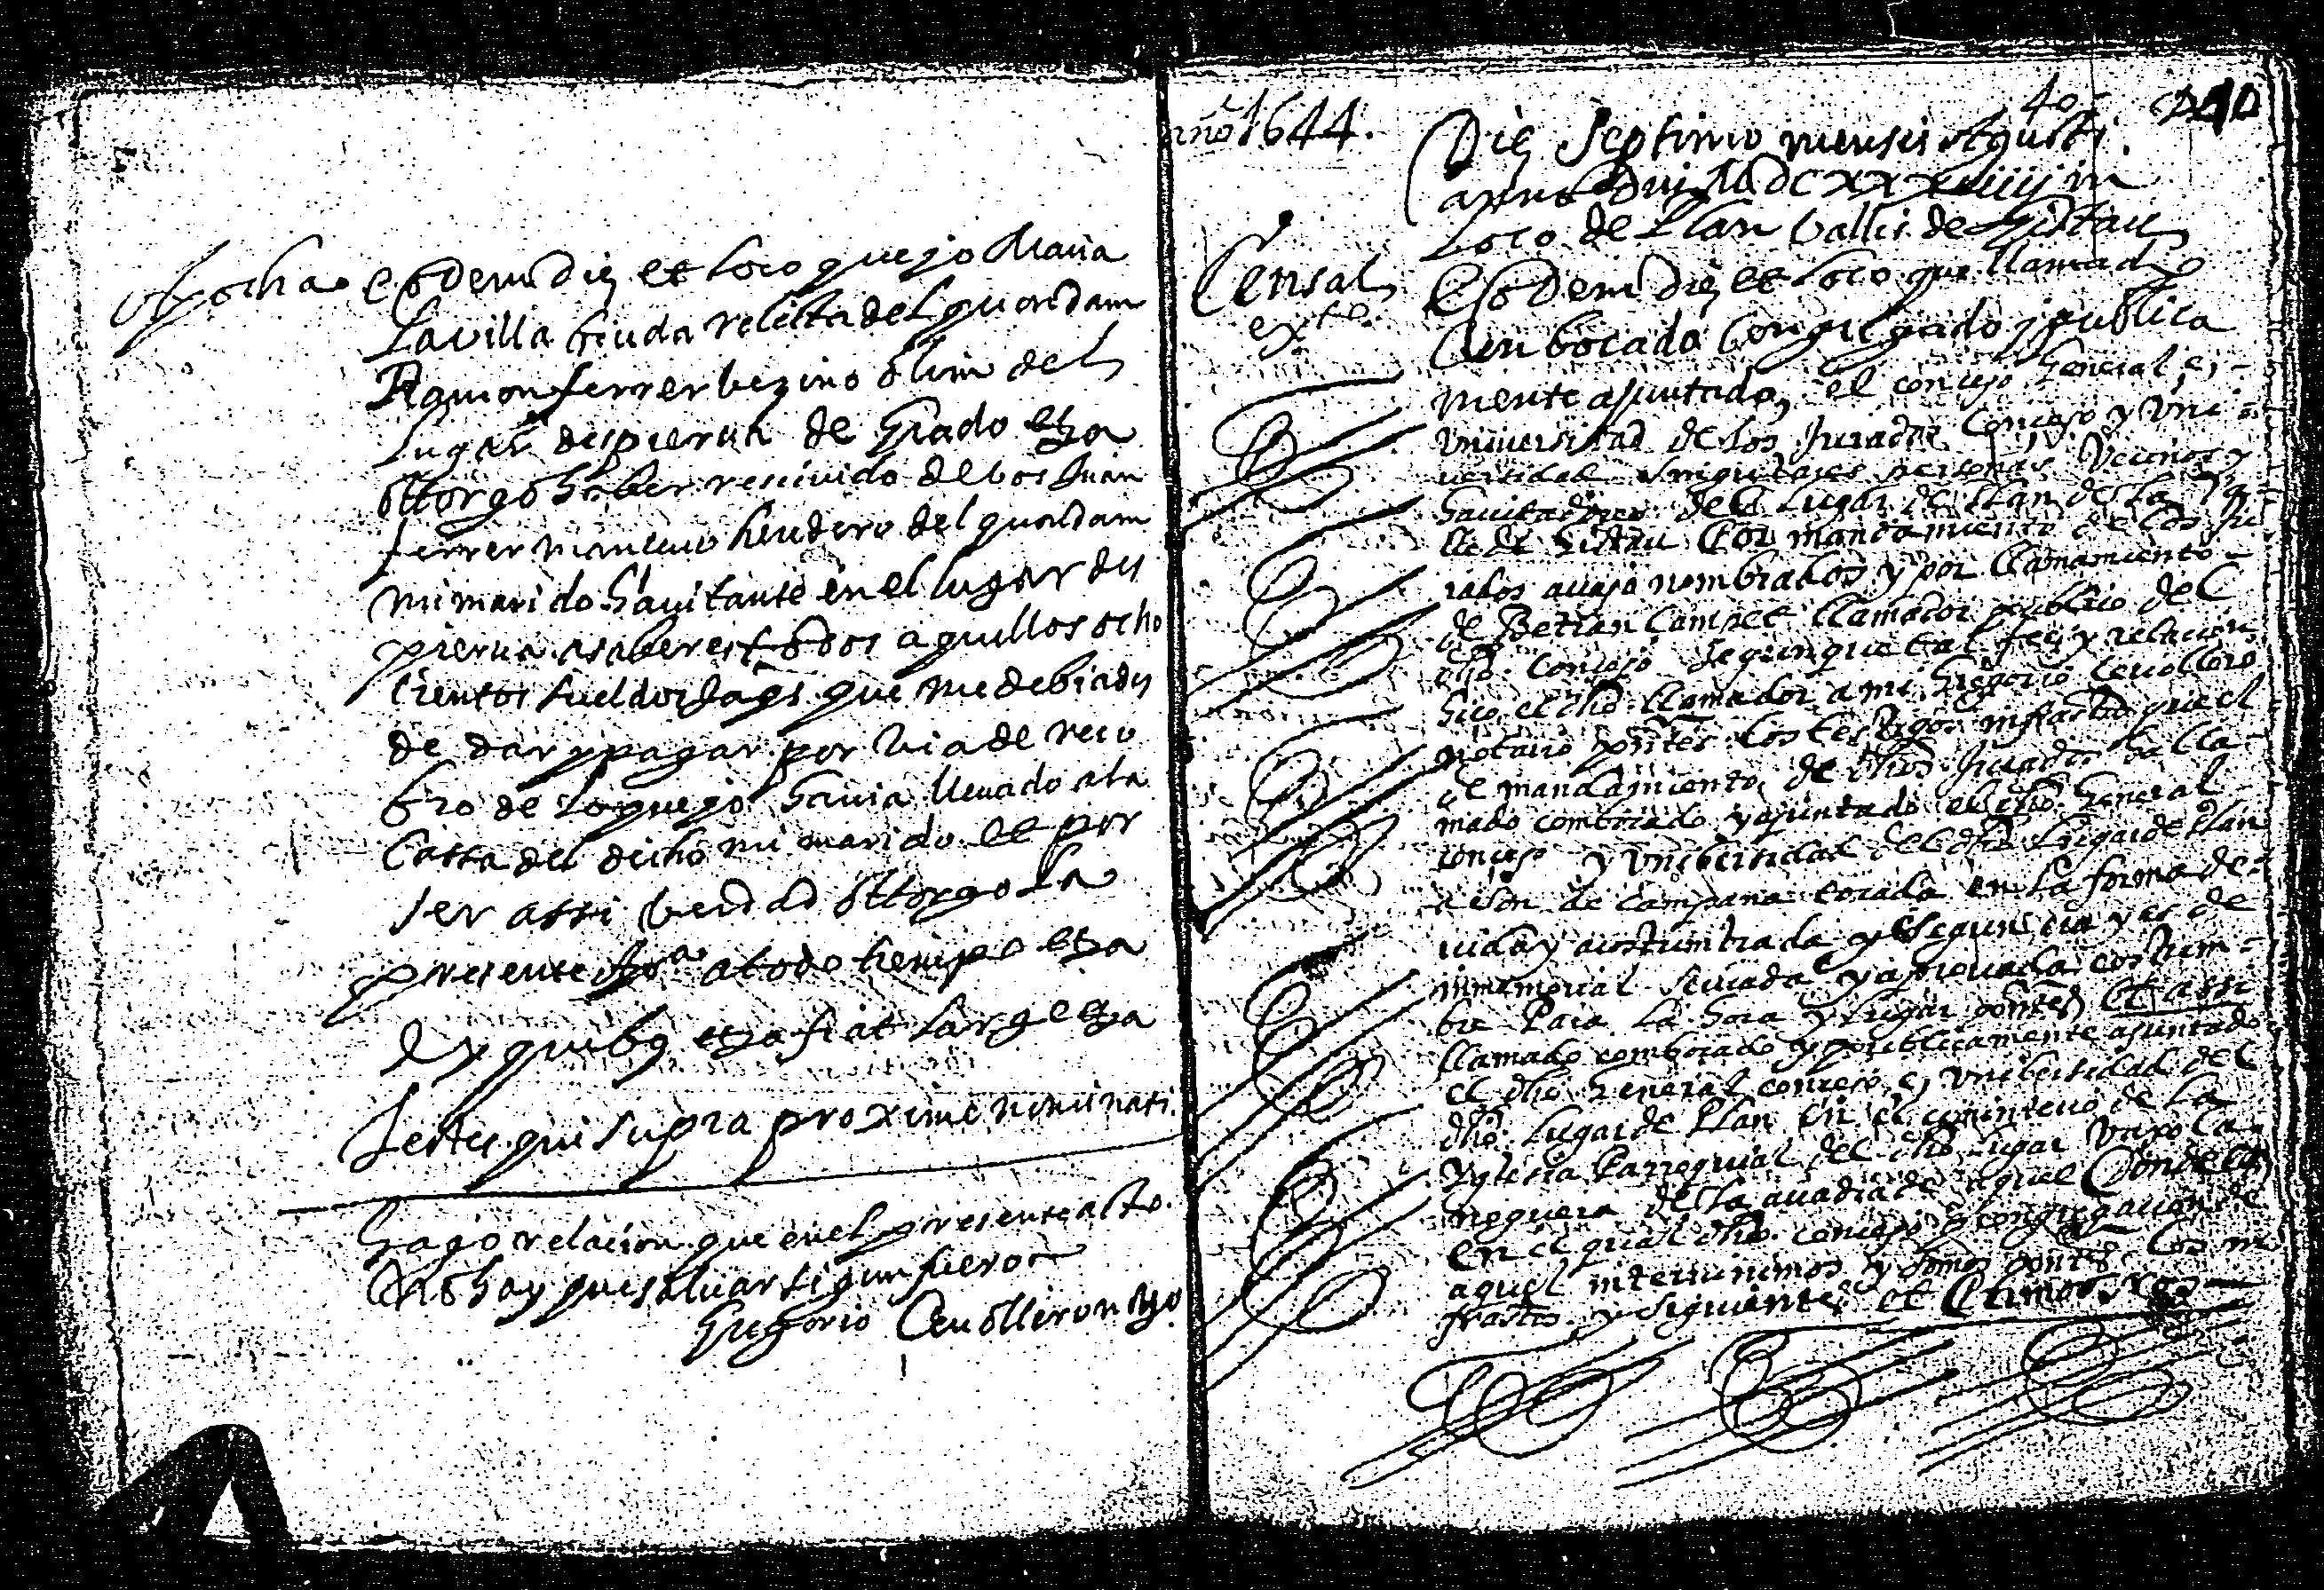 Apocha
eodem die et loco que yo Maria
Lavilla biuda relicta del quondam
Ramon ferrer bezino olim del
lugar despierua de grado etza
ottorgo haber resciuido de bos Juan
ferrer mancuo heredero del quondam
mi marido hauitante en el lugar des
pierua asaber es todos aquellos ocho
cientos sueldos jaqs que me debiades
de dar y pagar por bia de reco
bro de lo que yo hauia lleuado a la
cassa del dicho mi marido et por
ser assi berdad ottorgo la
presente apoca a todo tiempo etza
Ex quibus etza fiat large etza
Testes qui supra proxime nominati.
hago relacion que en el presente acto
no hay que saluar sigun fuero
Gregorio Ceuollero noto
año 1644.
40
Die septimo mensis Agusti
anno Dni MDCXXXXiiij in
Loco de Plan Vallis de Gistau
Censal
exte
Eodem die et loco que llamado
Conbocado Congregado y publica
mente ajuntado, el concejo General e,
vniuersitad de los Jurados Concejo y vni=
uersidad singulares personas Vecinos y
hauitadores del Lugar de Plan de la Va=
lle de Gistau Por mandamiento de los Ju
rados auajo nombrados y por llamamiento
de Betran Campret llamador publico del
dho Concejo segun que tal fee y relacion
hico el dho llamador a mi Gregorio Ceuollero
notario pntes los testigos infractos que el
de mandamiento de dhos Jurados ha lla=
mado combocado y ajuntado el dho General
concejo y vnibersidad del dho Lugar de Plan
a son de campana tocada en la forma de=
uida y acostumbrada y segun era y es de
inmemorial seruada y aprouada costum=
bre Para la hora y lugar pntes Et assi
llamado combocado y publicamente ajuntado
el dho General concejo e, vnibersidad del
dho Lugar de Plan en el ciminterio de la
Yglesia Parroquial del dho Lugar vaxo la
noguera de la auadia de aquel Donde et
en el qual dho concejo y congregacion de
aquel interuinimos y somos pntes los in
fractos y siguientes et Primo nos